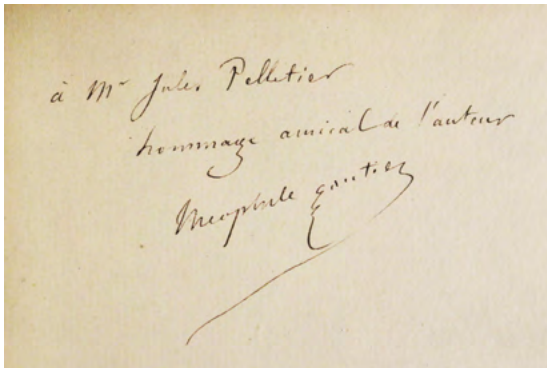 à Mr Jules Pelletier
hommage amical de l'auteur
Théophile Gautier